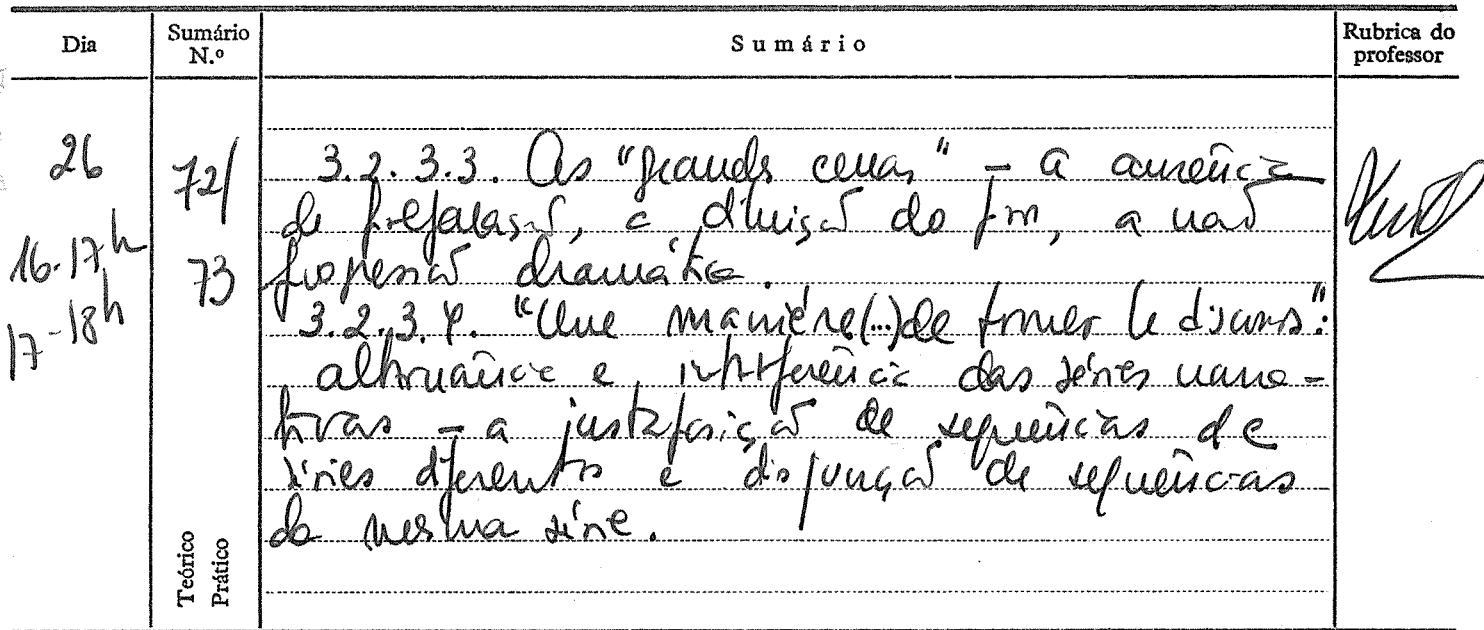 Dia
Sumário N.º
Sumário
Rubrica do professor
26
16-17h
17-18h
72/
73
3.2.3.3. As "grandes cenas" – a ausência
de preparação, a diluição do fim, a não
progressão dramática.
3.2.3.4. "Une manière (...) de former le discours":
alternância e interferência das séries narra-
tivas – a justaposição de sequências de
séries diferentes e disjunção de sequências
da mesma série.
Teórico
Prático